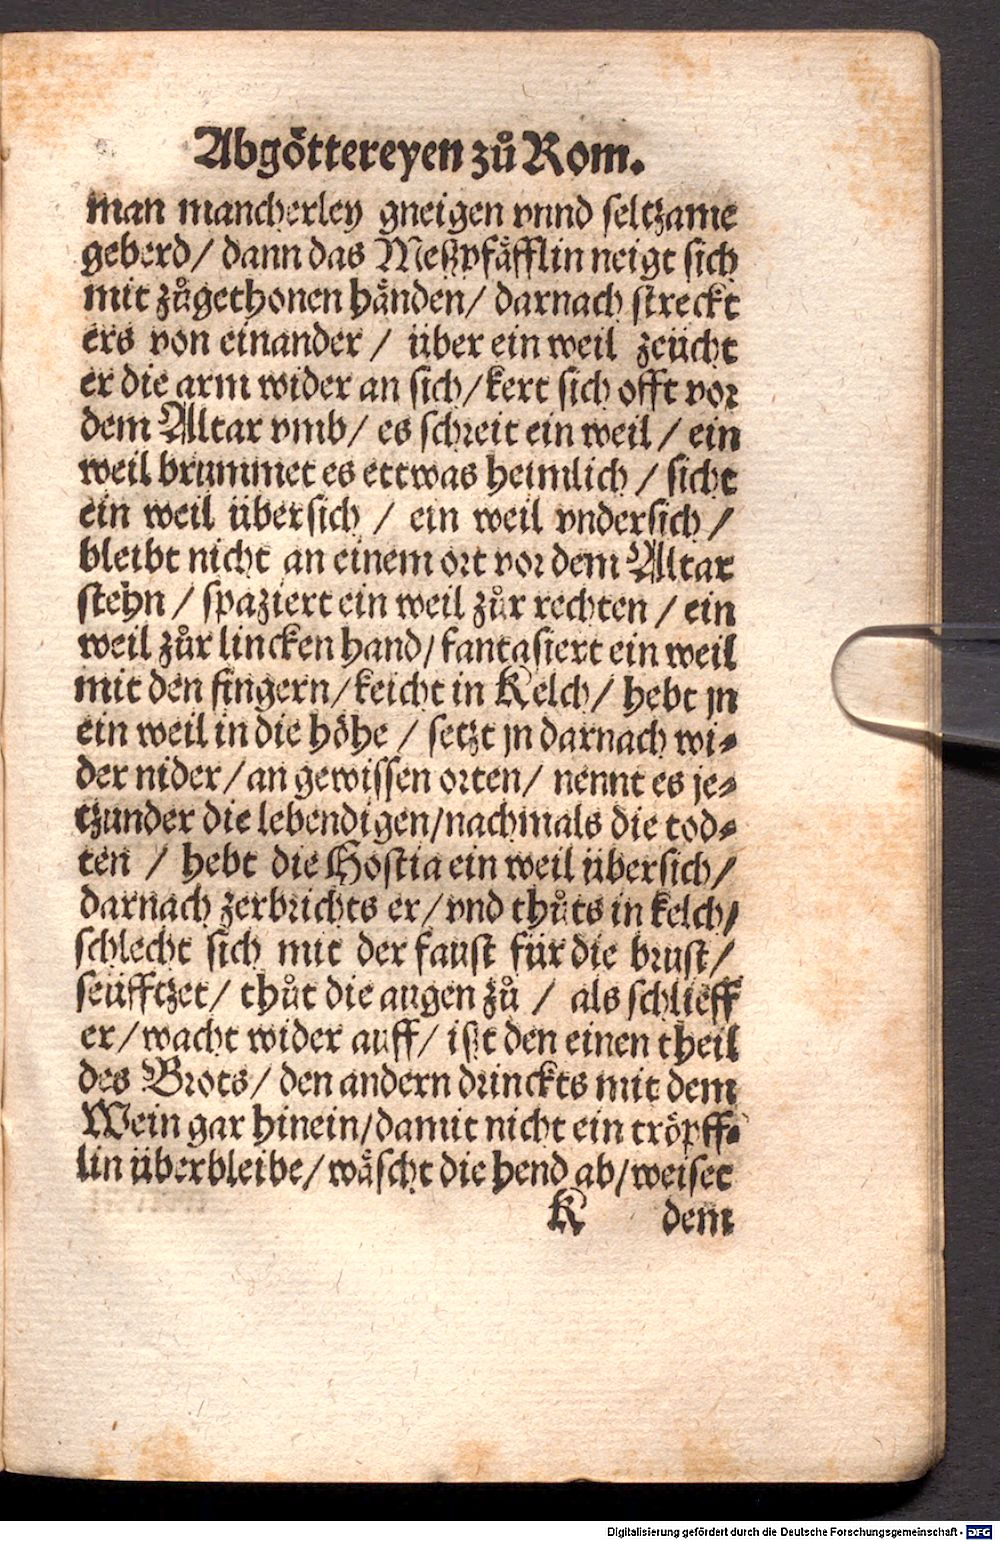 Abgöttereyen zů Rom.
man mancherley gneigen vnnd seltzame
geberd/ dann das Meßpfäfflin neigt sich
mit zůgethonen händen/ darnach streckt
ers von einander / über ein weil zeücht
er die arm wider an sich/ kert sich offt vor
dem Altar vmb/ es schreit ein weil / ein
weil brummet es ettwas heimlich / sicht
ein weil übersich / ein weil vndersich /
bleibt nicht an einem ort vor dem Altar
stehn / spaziert ein weil zůr rechten / ein
weil zůr lincken hand/ fantasiert ein weil
mit den fingern/ keicht in Kelch/ hebt jn
ein weil in die höhe / setzt jn darnach wi⸗
der nider/ an gewissen orten/ nennt es je⸗
tzunder die lebendigen/ nachmals die tod⸗
ten / hebt die Hostia ein weil übersich/
darnach zerbrichts er/ vnd thůts in kelch/
schlecht sich mit der faust für die brust/
seüfftzet/ thůt die augen zů / als schlieff
er/ wacht wider auff/ ißt den einen theil
des Brots/ den andern drinckts mit dem
Wein gar hinein/ damit nicht ein tröpff⸗
lin überbleibe/ wäscht die hend ab/ weiset
K dem
Digitalisierung gefördert durch die Deutsche Forschungsgemeinschaft - DFG